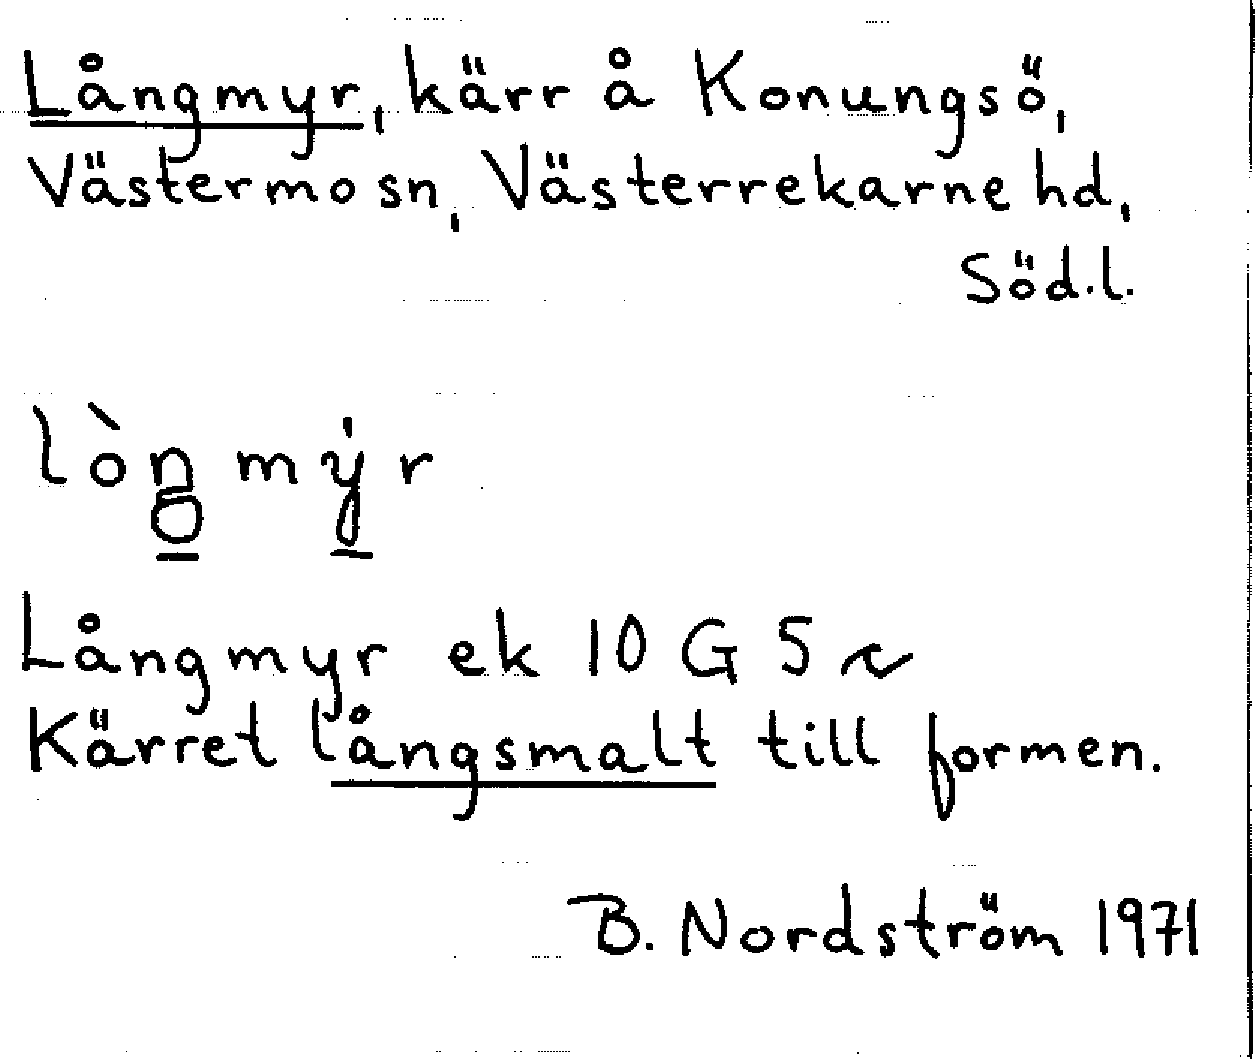 Långmyr, kärr å Konungsö,
Västermo sn, Västerrekarne hd,
Söd.l.
Långmyr ek 10 G 5 r
Kärret långsmalt till formen.
B. Nordström 1971